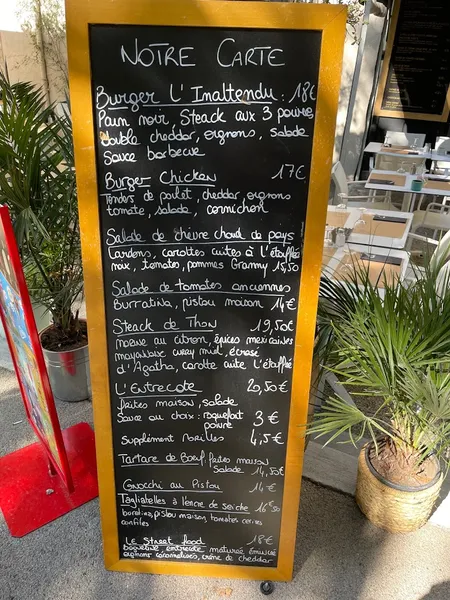 NOTRE CARTE
Burger L'Inaltendu : 18€
Pain noir, Steack aux 3 poivres
double cheddar, oignons, salade
Sauce barbecue
Burger Chicken 17€
Tenders de poulet, cheddar, oignons
tomate, salade, cornichon
Salade de chèvre chaud de pays
Lardons, carottes cuites à l'étouffée
noix, tomates, pommes Granny 15,50
Salade de tomates anciennes
Burratina, pistou maison 14€
Steack de Thon 19,50€
marine au citron, épices mexicaines
mayonnaise curry miel, écrasé
d'Agatha, carotte cuite l'étouffée
L'Entrecote 20,50€
frites maison, salade
Sauce au choix : roquefort 3€
poivre
Supplément morilles 4,5€
Tartare de Boeuf. frites maison
Salade 14,50€
Gnocchi au Pistou 14€
Tagliatelles à l'encre de seiche 16€50
buratina, pistou maison, tomates cerises
confites
Le Street food 18€
baguette entrecote maturée, émincé
oignons caramélisés, crème de cheddar